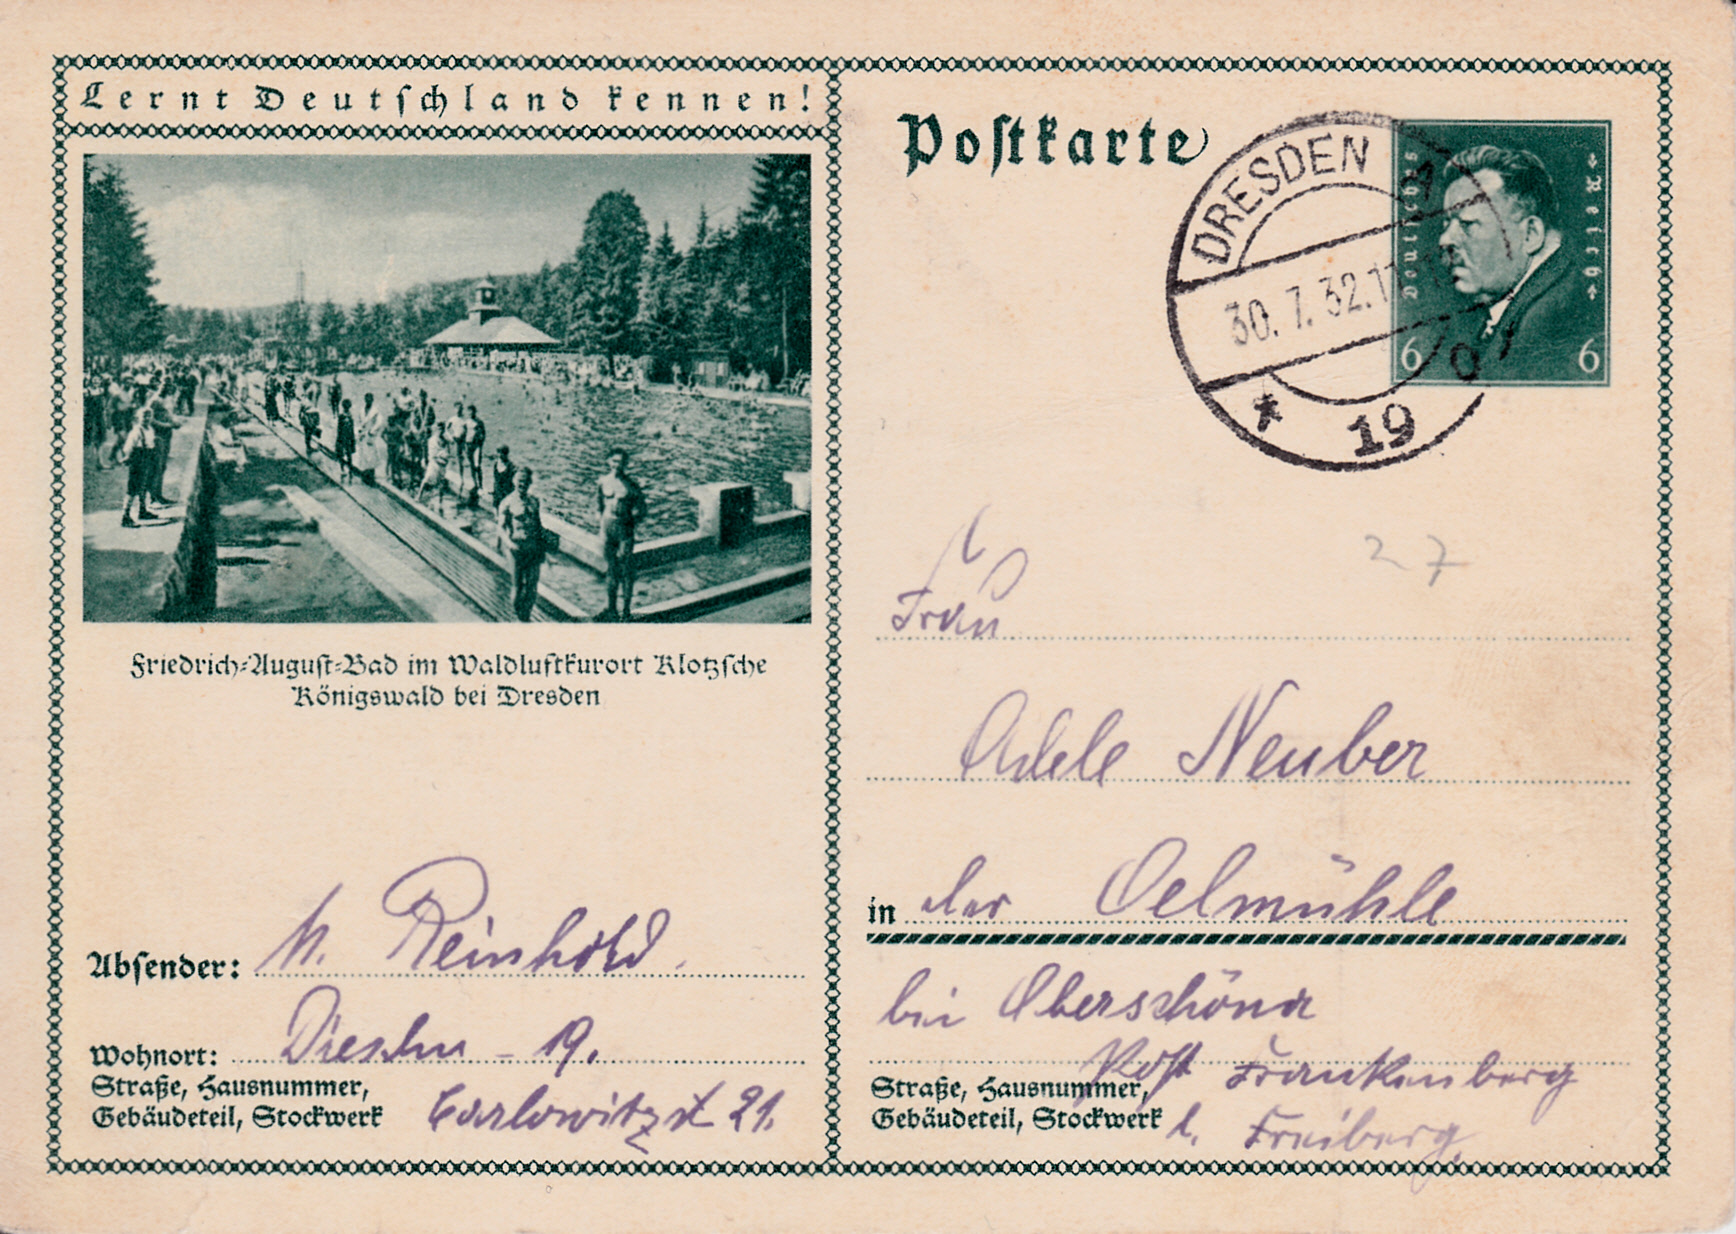 Lernt Deutschland kennen!
Friedrich-August-Bad im Waldluftkurort Klotzsche
Königswald bei Dresden
Absender: M. Reinhold.
Wohnort: Dresden - 19.
Straße, Hausnummer,
Gebäudeteil, Stockwerk Carlowitzst 21.
Postkarte
DRESDEN
30.7.32.
* 19
Deutsches Reich
6 6
27
Frau
Adele Neuber
in der Oelmühle
bei Oberschöna
Post Frankenberg
Straße, Hausnummer,
Gebäudeteil, Stockwerk
Freiberg.